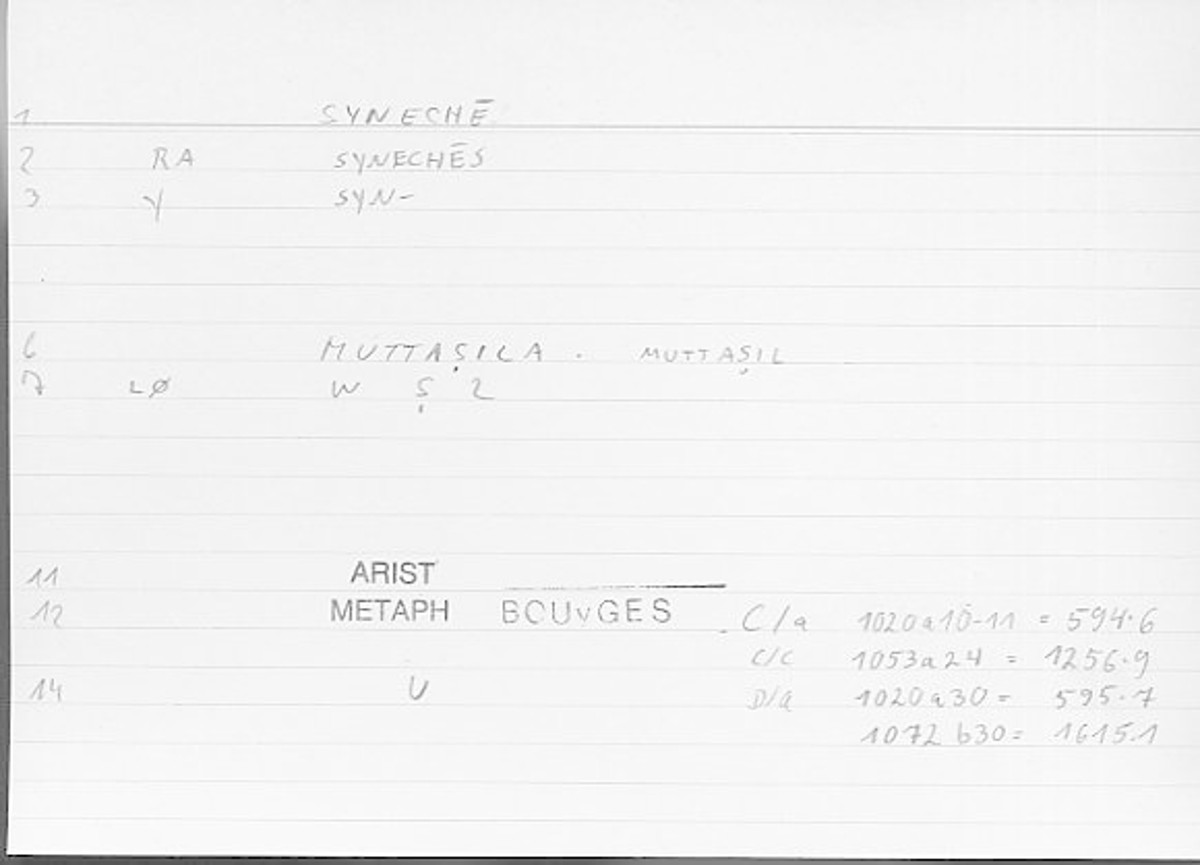 1 SYNECHĒ
2 RA SYNECHĒS
3 γ SYN-
6 MUTTAṢILA . MUTTAṢIL
7 LØ W Ṣ L
11 ARIST
12 METAPH BOUYGES C/a 1020a10-11 = 594.6
C/C 1053a24 = 1256.9
14 U D/a 1020a30 = 595.7
1072 b30 = 1615.1